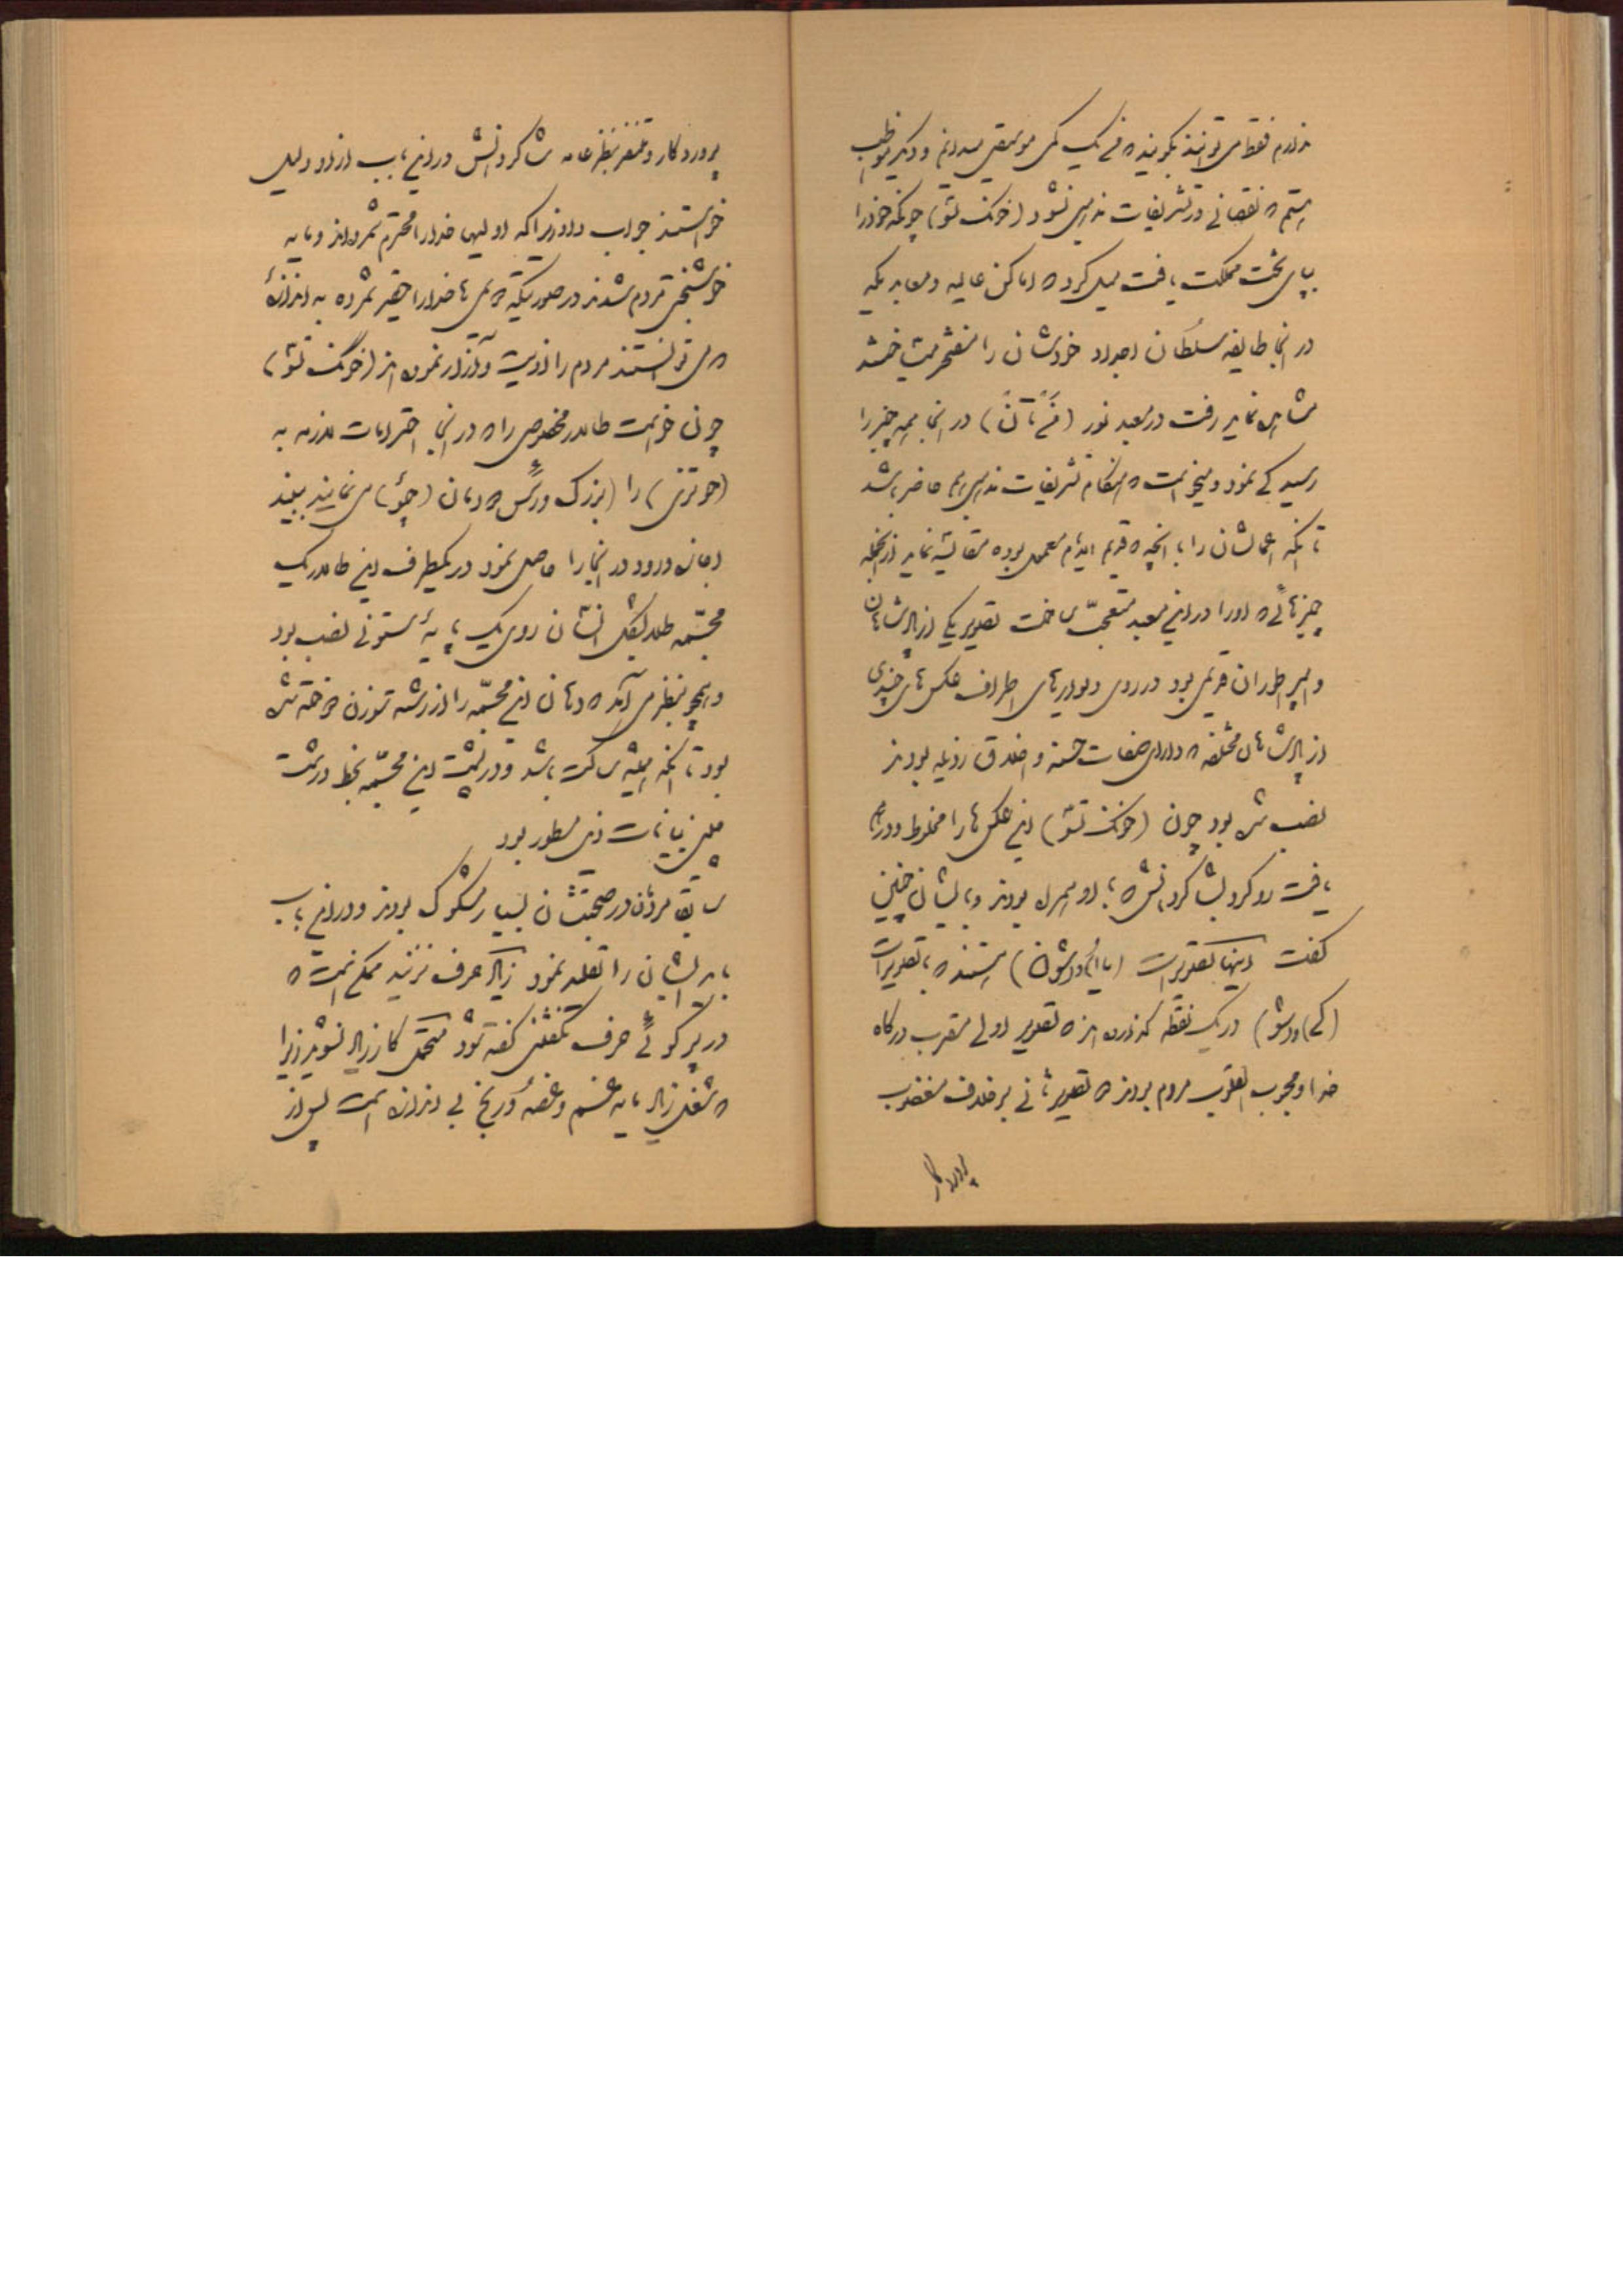 ندارم فقط می توانند بگویند که من یک کمی موسیقی میدانم و دیگر مواظب
هستم که نقصانی در تشریفات مذهبی نشود (خونک تسو) چونکه خود را
بپای تخت مملکت یافت میل کرد که اماکن عالیه و معابدیکه
در آنجا طایفه سلطان اجداد خودشان را مفتخر میساختند
مشاهده نماید رفت در معبد نور در آنجا همه چیز را
رسیدگی نمود و میخواست که هنگام تشریفات مذهبی هم حاضر باشد
تا آنکه اعمالشان را با آنچه که قدیم ایام معمول بوده مقایسه نماید از آنجمله
چیزهائی که او را در این معبد متعجب ساخت تصویر یکی از پادشاهان
و امپراطوران قدیمی بود در روی دیوارهای اطراف عکس های چندی
از پادشاهان مختلفه که دارای صفات حسنه و اخلاق رذیله بودند
نصب شده بود چون (خونک تسو) این عکس ها را مخلوط و درهم
یافت رو کرد بشاگردانش که با او همراه بودند و بایشان چنین
گفت اینها تصویرات هستند که با تصویرات
در یک نقطه گذارده اند که تصویر اولی مقرب درگاه
خدا و محبوب القلوب مردم بودند که تصویر ثانی برخلاف مغضوب
پروردگار
پروردگار و متنفر بنظر عامه شاگردانش در این باب از او دلیل
خواستند جواب داد زیرا که اولیها خدا را محترم شمرده اند و مایه
خوشبختی مردم شدند در صورتیکه دومی ها خدا را حقیر شمرده به اندازهٔ
که می توانستند مردم را اذیت و آزار نموده اند (خونک تسو)
چون خواست طالار مخصوصی را که در آنجا احترامات لازمه به
(حوتزی) را (بزرگ و رئیس دودمان (چئو) می نمایند ببیند
اجازه ورود در آنجا را حاصل نمود در یکطرف این طالار یک
مجسمه طلا بشکل انسان روی یک پایهٔ ستونی نصب بود
و همچو بنظر می آمد که دهان این مجسمه را از رشته سوزن دوخته شده
بود تا آنکه همیشه ساکت باشد و در پشت این مجسمه بخط درشت
بیانات ذیل مسطور بود
سابق مردمان در صحبتشان بسیار مشکوک بودند و در این باب
باید ایشان را تقلید نمود زیاد حرف نزنید ممکن نیست که
در پرگوئی حرف نگفتنی گفته نشود متحمل کار زیاد نشوید زیرا
که شغل زیاد مایه غم و غصه و رنج بی اندازه است پس از